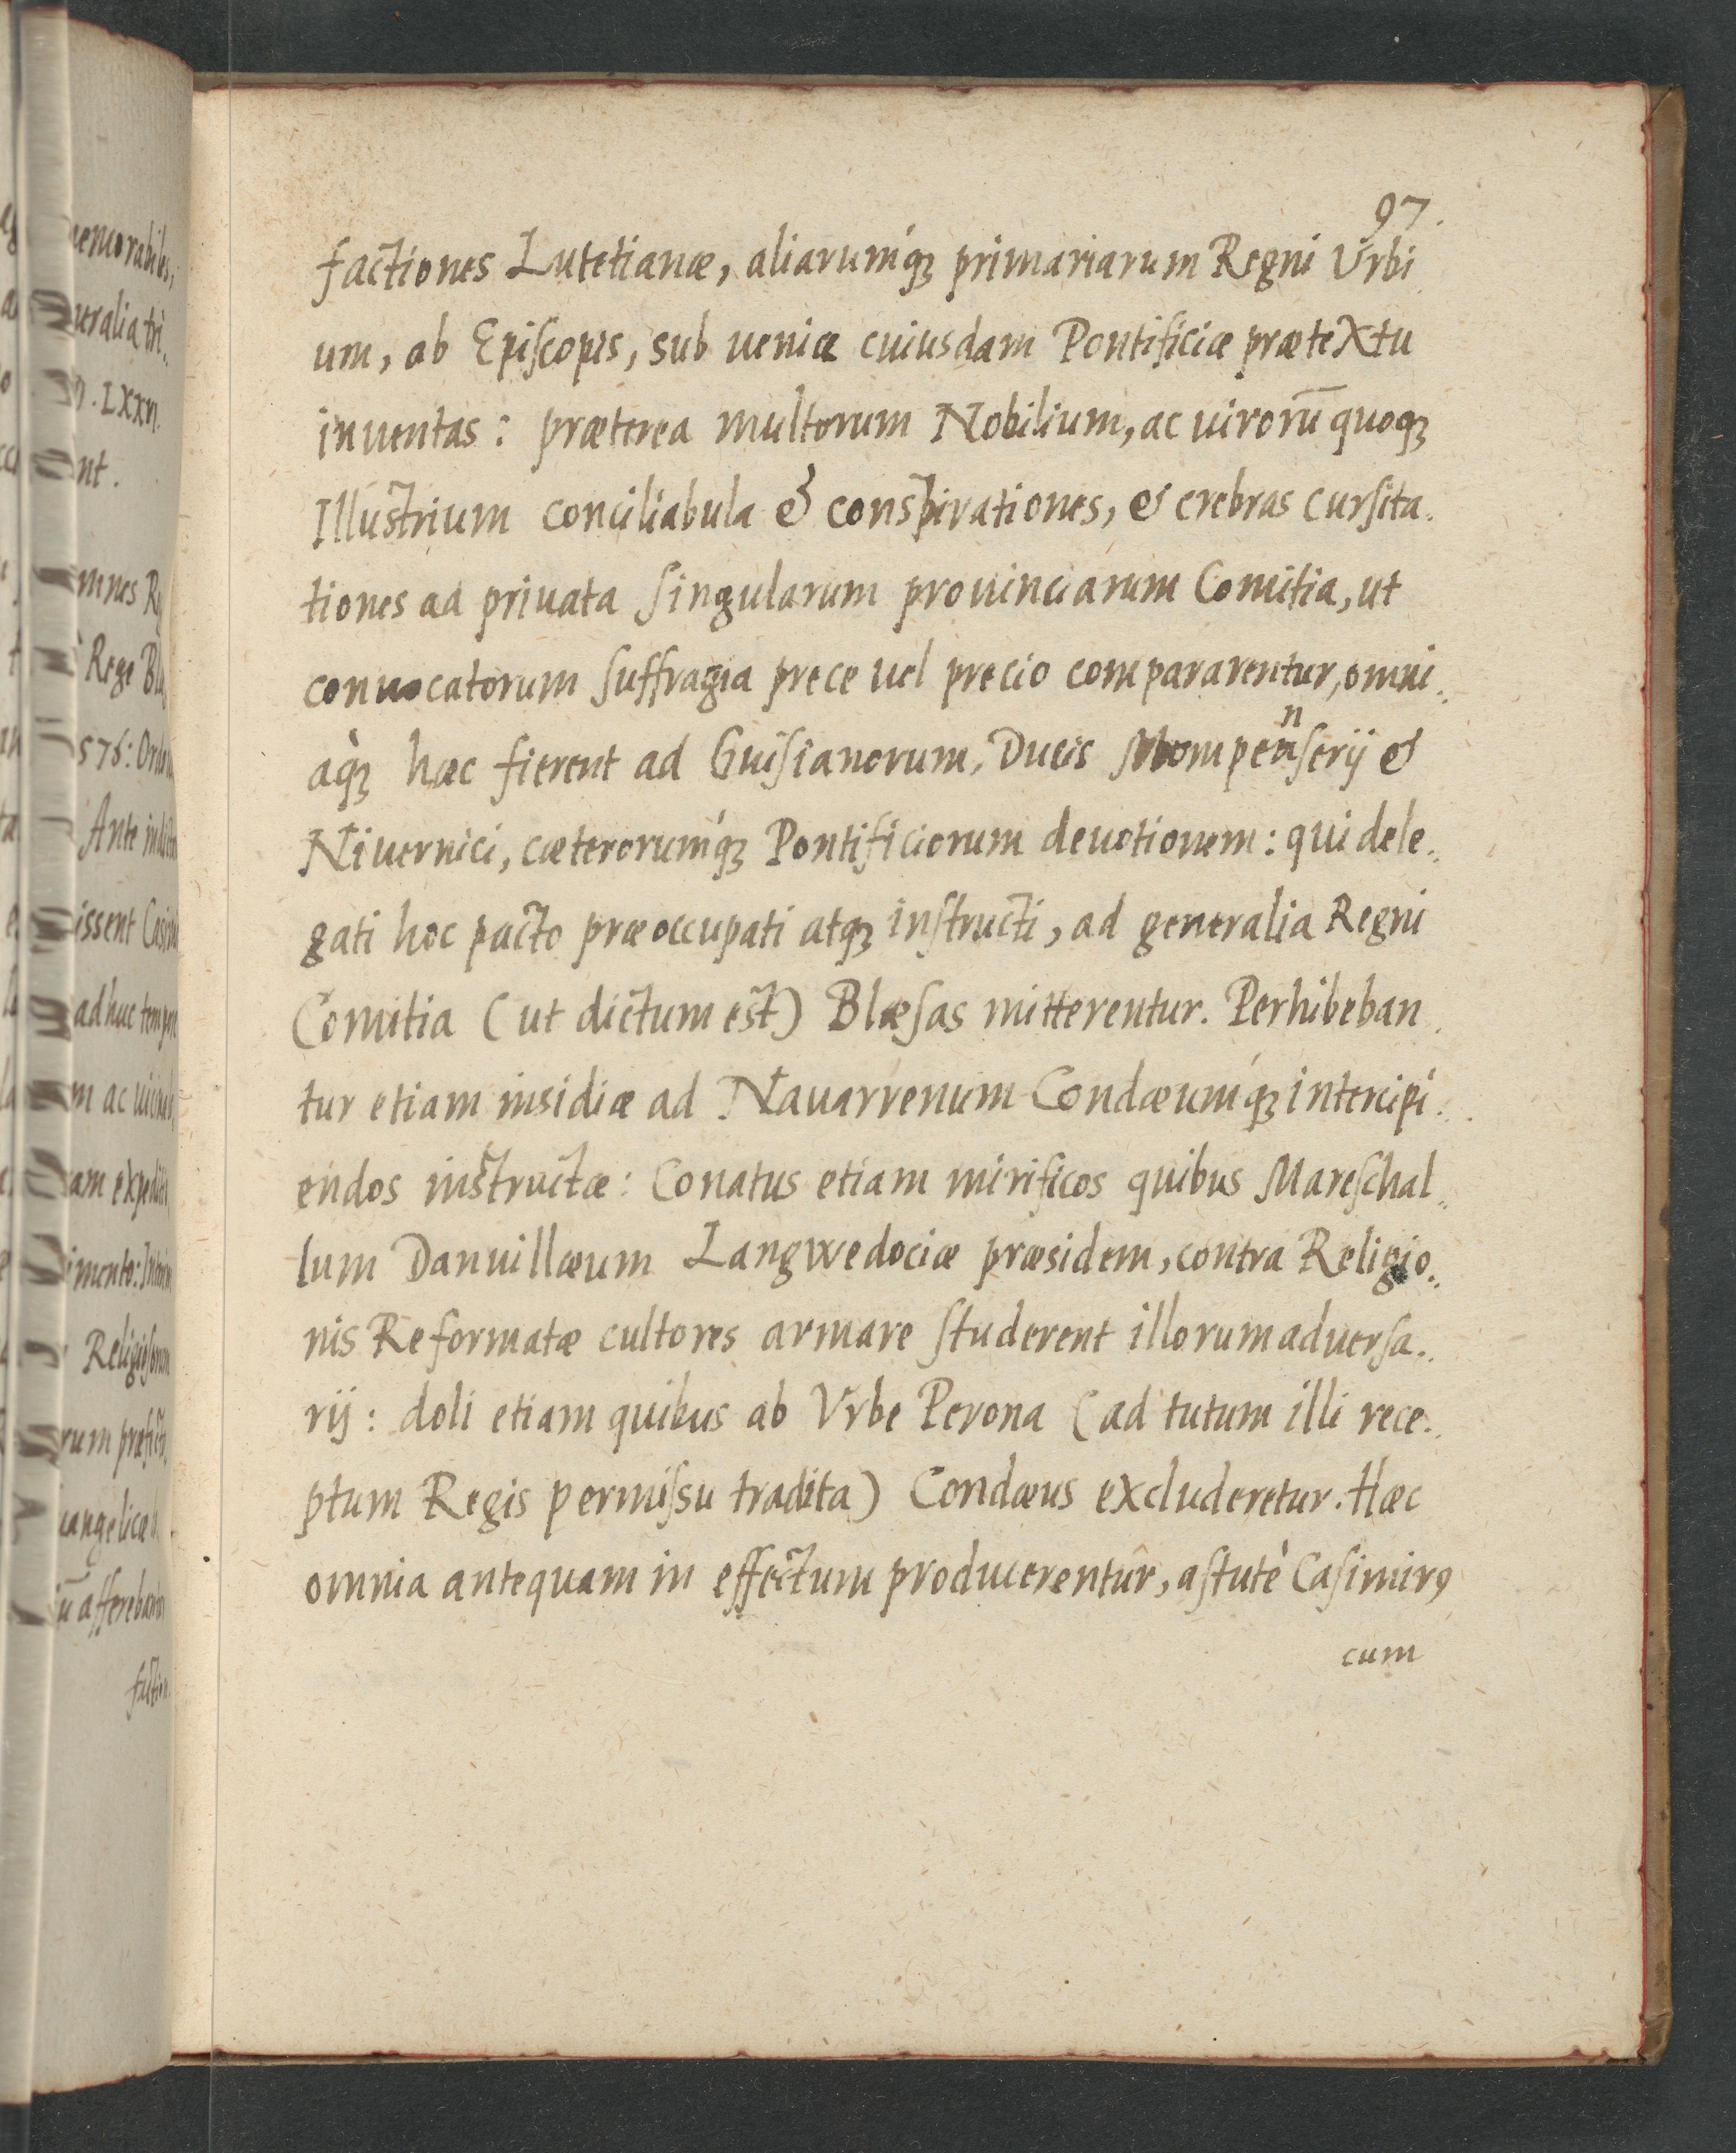 97.
factiones Lutetianæ, aliarumq́ꝫ primariarum Regni Vrbi
um, ab Epiſcopis, sub ueniæ cuiusdam Pontificiæ prætextu
inuentas: præterea multorum Nobilium, ac uirorū quoqꝫ
Illustrium conciliabula & conspirationes, & crebras curſita.
tiones ad priuata ſingularum prouinciarum Comitia, ut
conuocatorum ſuffragia prece uel precio compararentur, omni.
aq̀ꝫ hæc fierent ad Guiſianorum, Ducis Mompenſerij &
Niuernici, cæterorumq́ꝫ Pontificiorum deuotionem: qui dele..
gati hoc pacto præoccupati atqꝫ inſtructi, ad generalia Regni
Comitia (ut dictum est) Blæſas mitterentur. Perhibeban.
tur etiam insidiæ ad Nauarrenum Condæumq́ꝫ intercipi..
endos instructæ: Conatus etiam mirificos quibus Mareſchal..
lum Danuillæum Langwedociæ præsidem, contra Religio..
nis Reformatæ cultores armare ſtuderent illorum aduerſa..
rij: doli etiam quibus ab Vrbe Perona (ad tutum illi rece..
ptum Regis permiſsu tradita) Condæus excluderetur. Hæc
omnia antequam in effectum producerentur, aſtutè Caſimirꝰ
cum
memorabiles,
neralia tri..
. LXXVI.
nt.
omnes R
Rege Bl
576: Ord
Ante
issent Casi
ad huc temp
m ac
am expedit
imento:
Religiſ
rum præf
uangelicæ
ū afferebant